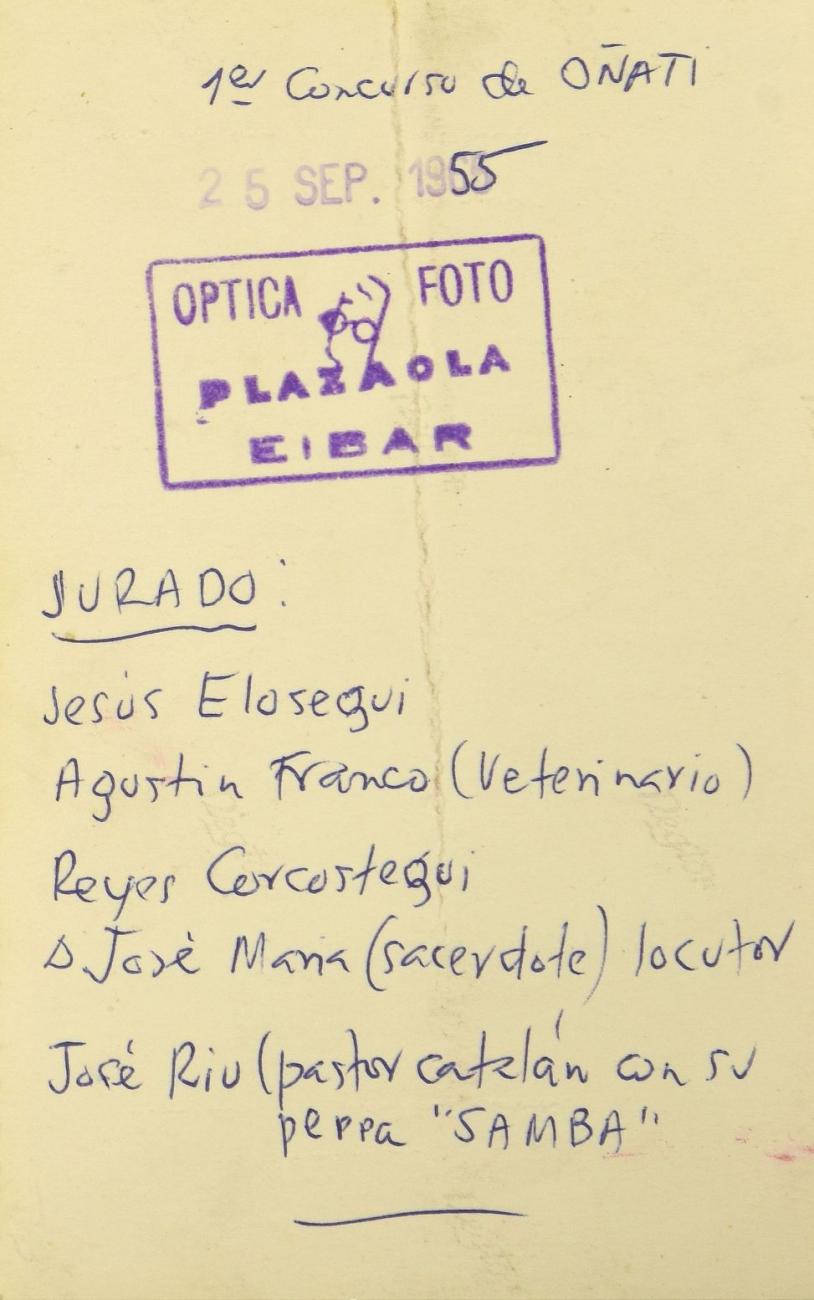 1er Concurso de OÑATI
25 SEP. 1955
OPTICA FOTO
PLAZAOLA
EIBAR
JURADO:
Jesús Elosegui
Agustin Franco (Veterinario)
Reyes Corcostegui
D. José Maria (sacerdote) locutor
José Riu (pastor catalán con su
perra "SAMBA"